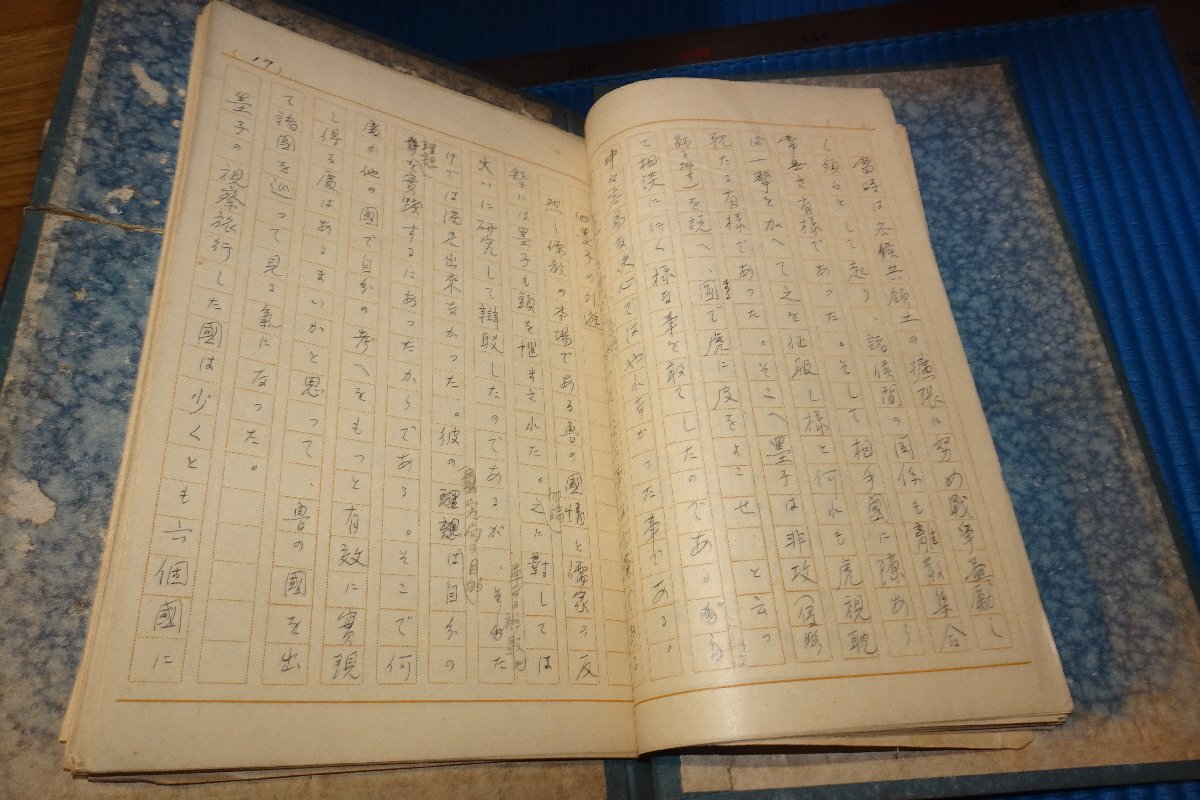 當時は各侯共領土の擴張に努め戰爭無動し
く領土として起り、諸侯間の関係も離散集合
常無き有様であった。そして相手國に隙あら
ば一擊を加へて之を征服し様と何れも虎視眈
眈たる有様であった。そこへ墨子は非攻
を説へ、で虎に皮をよこせ、と云っ
て相談に行く様な事を敢てしたのである
決心ではやれなかった事である。
四 墨子の外遊
然し儒教の本場である魯の國情と儒家の反
擊には墨子も頭を悩まされた。之に對しては
大いに研究して辯駁したのであるが、それた
けでは満足出来なかった。彼の理想は自分の
理想
を實踐するにあったからである。そこで何
處か他の國で自分の考へをもっと有效に實現
し得る處はあるまいかと思って、魯の國を出
て諸國を巡って見る氣になった。
墨子の視察旅行した國は少くとも六個國に
17